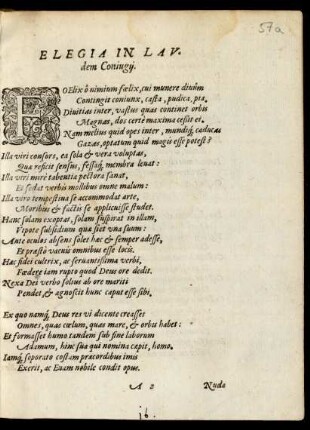 57a
ELEGIA IN LAV
dem Coniugij.
FOElix ô nimium fœlix, cui munere diuûm
Contingit coniunx, casta, pudica, pia,
Diuitias inter, vastus quas continet orbis
Magnas, dos certè maxima cessit ei.
Nam melius quid opes inter, mundiq́; caducas
Gazas, optatum quid magis esse potest?
Illa viri consors, ea sola & vera voluptas,
Quæ reficit sensus, fessaq́; membra leuat:
Illa viri mirè tabentia pectora sanat,
Et sedat verbis mollibus omne malum:
Illa viro tempestiua se accommodat arte,
Moribus & factis se applicuisse studet.
Hanc solam exoptat, solam suspirat in illam,
Vtpote subsidium quæ siet vna suum:
Ante oculos absens solet hæc & semper adesse,
Et præstò vacuis omnibus esse locis.
Hæc fidei cultrix, ac seruantissima verbi,
Fœdere iam rupto quod Deus ore dedit.
Nexa Dei verbo solius ab ore mariti
Pendet, & agnoscit hunc caput esse sibi,
Ex quo namq́; Deus res vi dicente creasset
Omnes, quas cœlum, quas mare, & orbis habet:
Et formasset humo tandem sub fine laborum
Adamum, hinc sua qui nomina cœpit, homo.
Iamq́; soporato costam præcordibus imis
Exerit, ac Euam nobile condit opus.
A 2 Nuda
16.